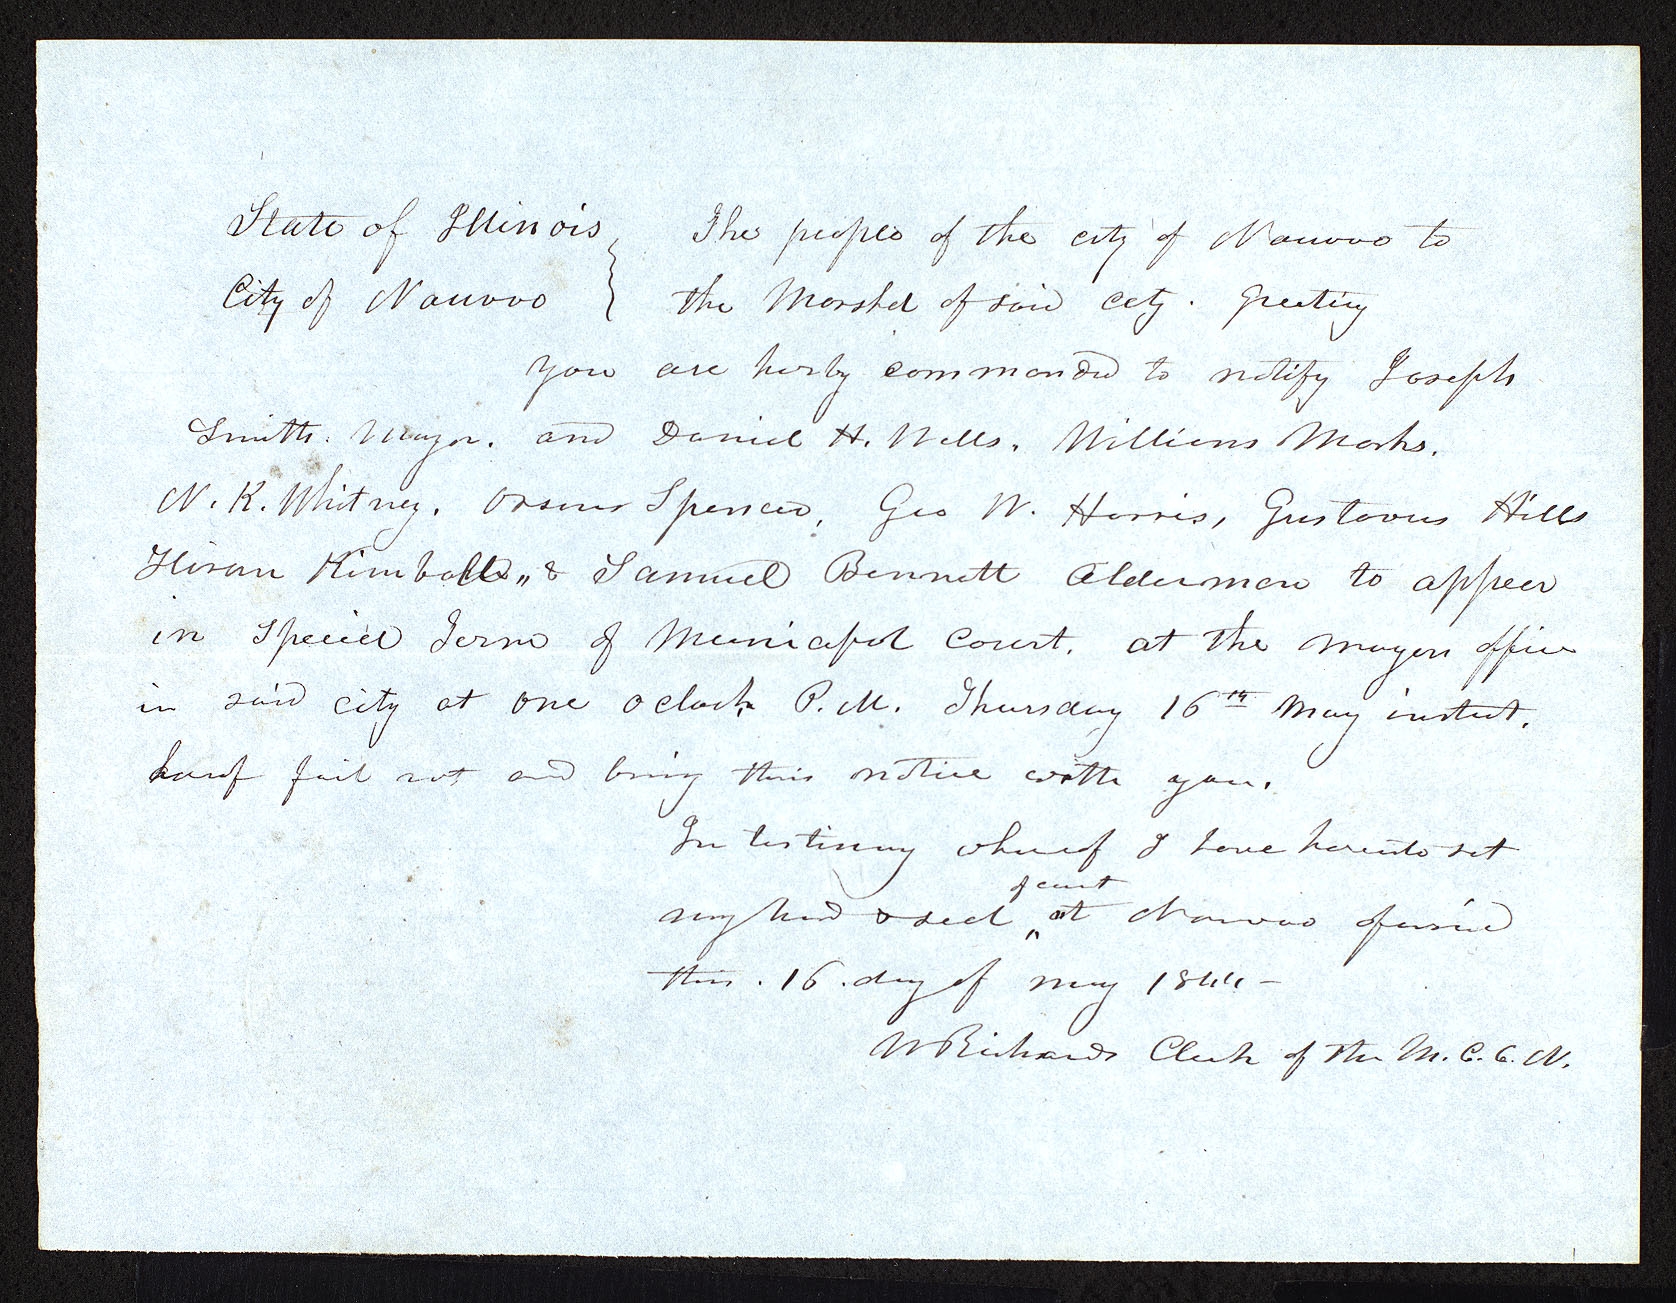 State of Illinois } The people of the city of Nauvoo to
City of Nauvoo } the Marshal of said city. Greeting
You are herby commanded to notify Joseph
Smith. Mayor. and Daniel H. Wells, William Marks.
N. K. Whitney. Orson Spencer, Geo W. Harris, Gustavus Hills
Hiram Kimball,, & Samuel Bennett Aldermen to appear
in special Term of Municipal Court. at the mayors office
in said city at one oclock P.M. Thursday 16th May instant.
fail not and bring this notice with you.
In testimony whereof I have hereunto set
of court
my hand & seal at Nauvoo
this. 16. day of may 1844-
W Richards Clerk of the M. C. C. N.